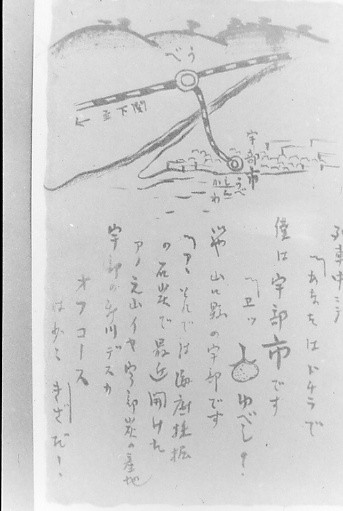 うべ
至下関
宇部市
うべしんかわ
列車中ニテ
「あなたはドチラで
僕は宇部市です
「エッ ゆべし?
いや 山口縣の宇部です
「アヽそれでは海底採掘
の石炭で最近開けた
アノ元山イヤ宇部炭の産地
宇部新川デスカ
オフコース
は少々きざだ!